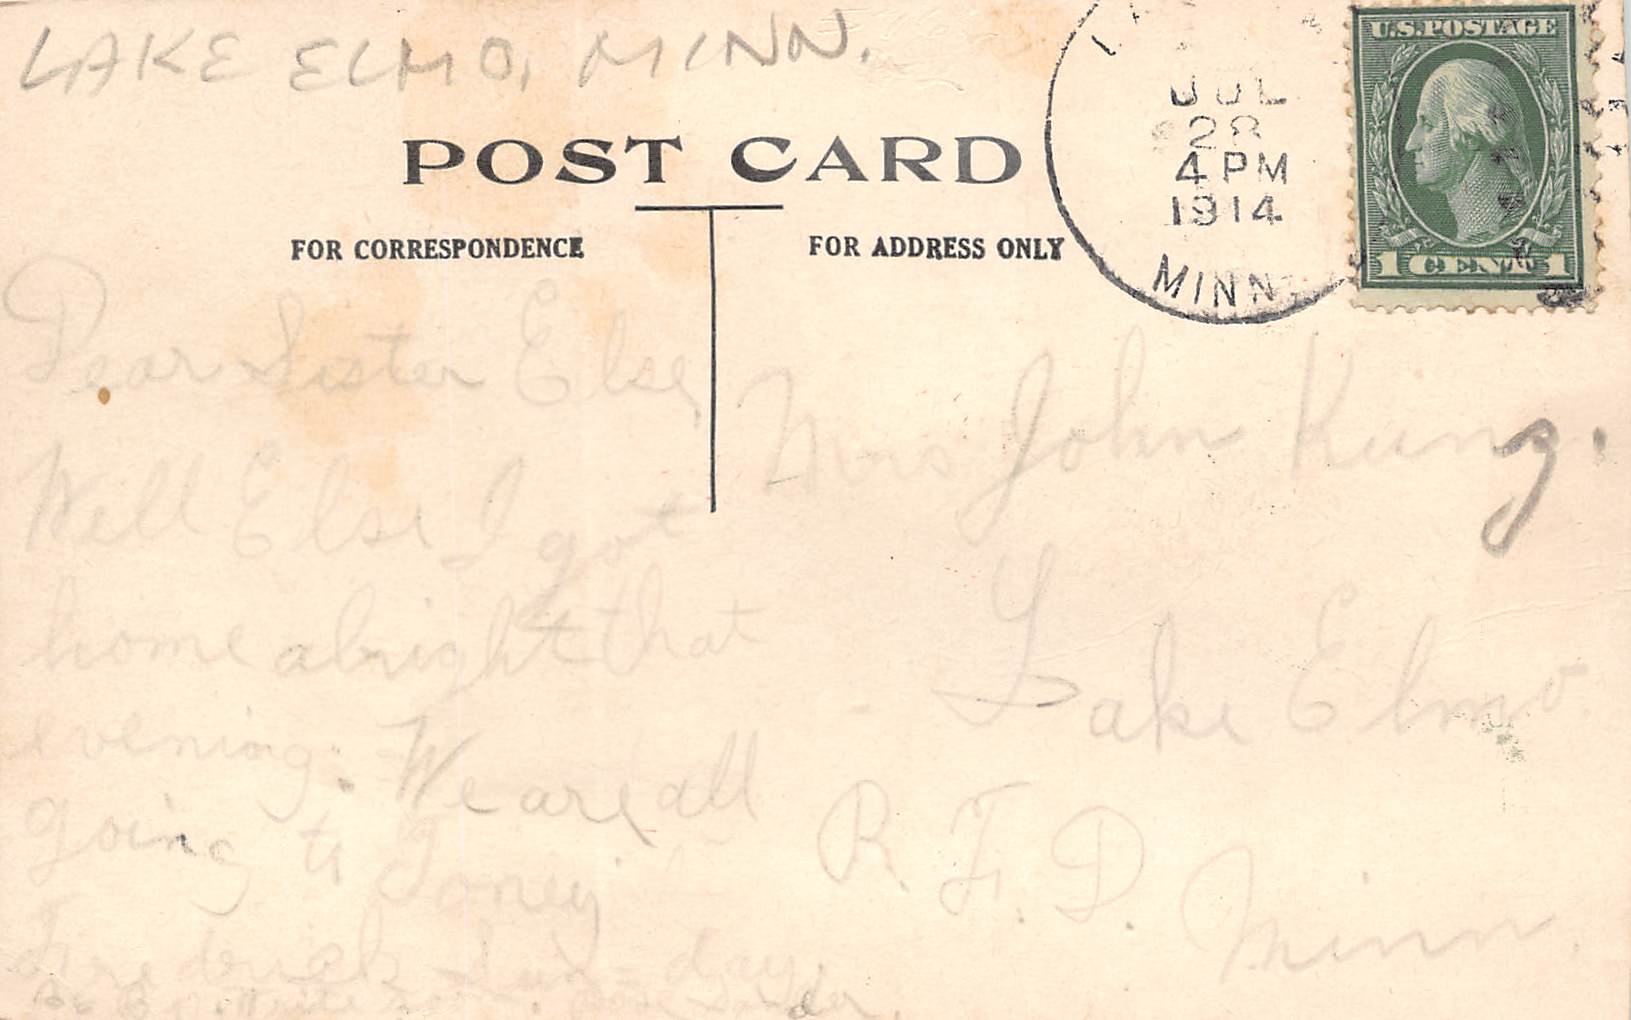 LAKE ELMO, MINN.
POST CARD
FOR CORRESPONDENCE
FOR ADDRESS ONLY
JUL
28
4 PM
1914
MINN.
U.S. POSTAGE
1 CENT 1
Dear Sister Else,
Well Else I got
home alright that
evening. We are all
going to Toney
Frederick Sun-day.
Mrs John Kunz.
Lake Elmo
R. F. D.
Minn.